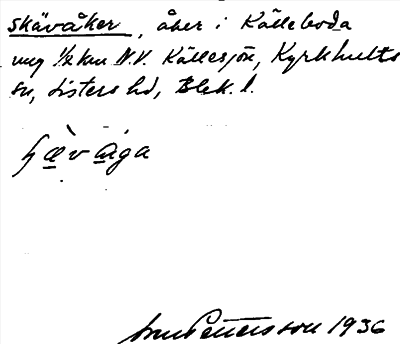 Skävåker, åker i Källeboda
ung 1/2 km N.V. Källesjön, Kyrkhults
sn, Listers hd, Blek. l.
ʃæ̀våga
Pettersson 1936